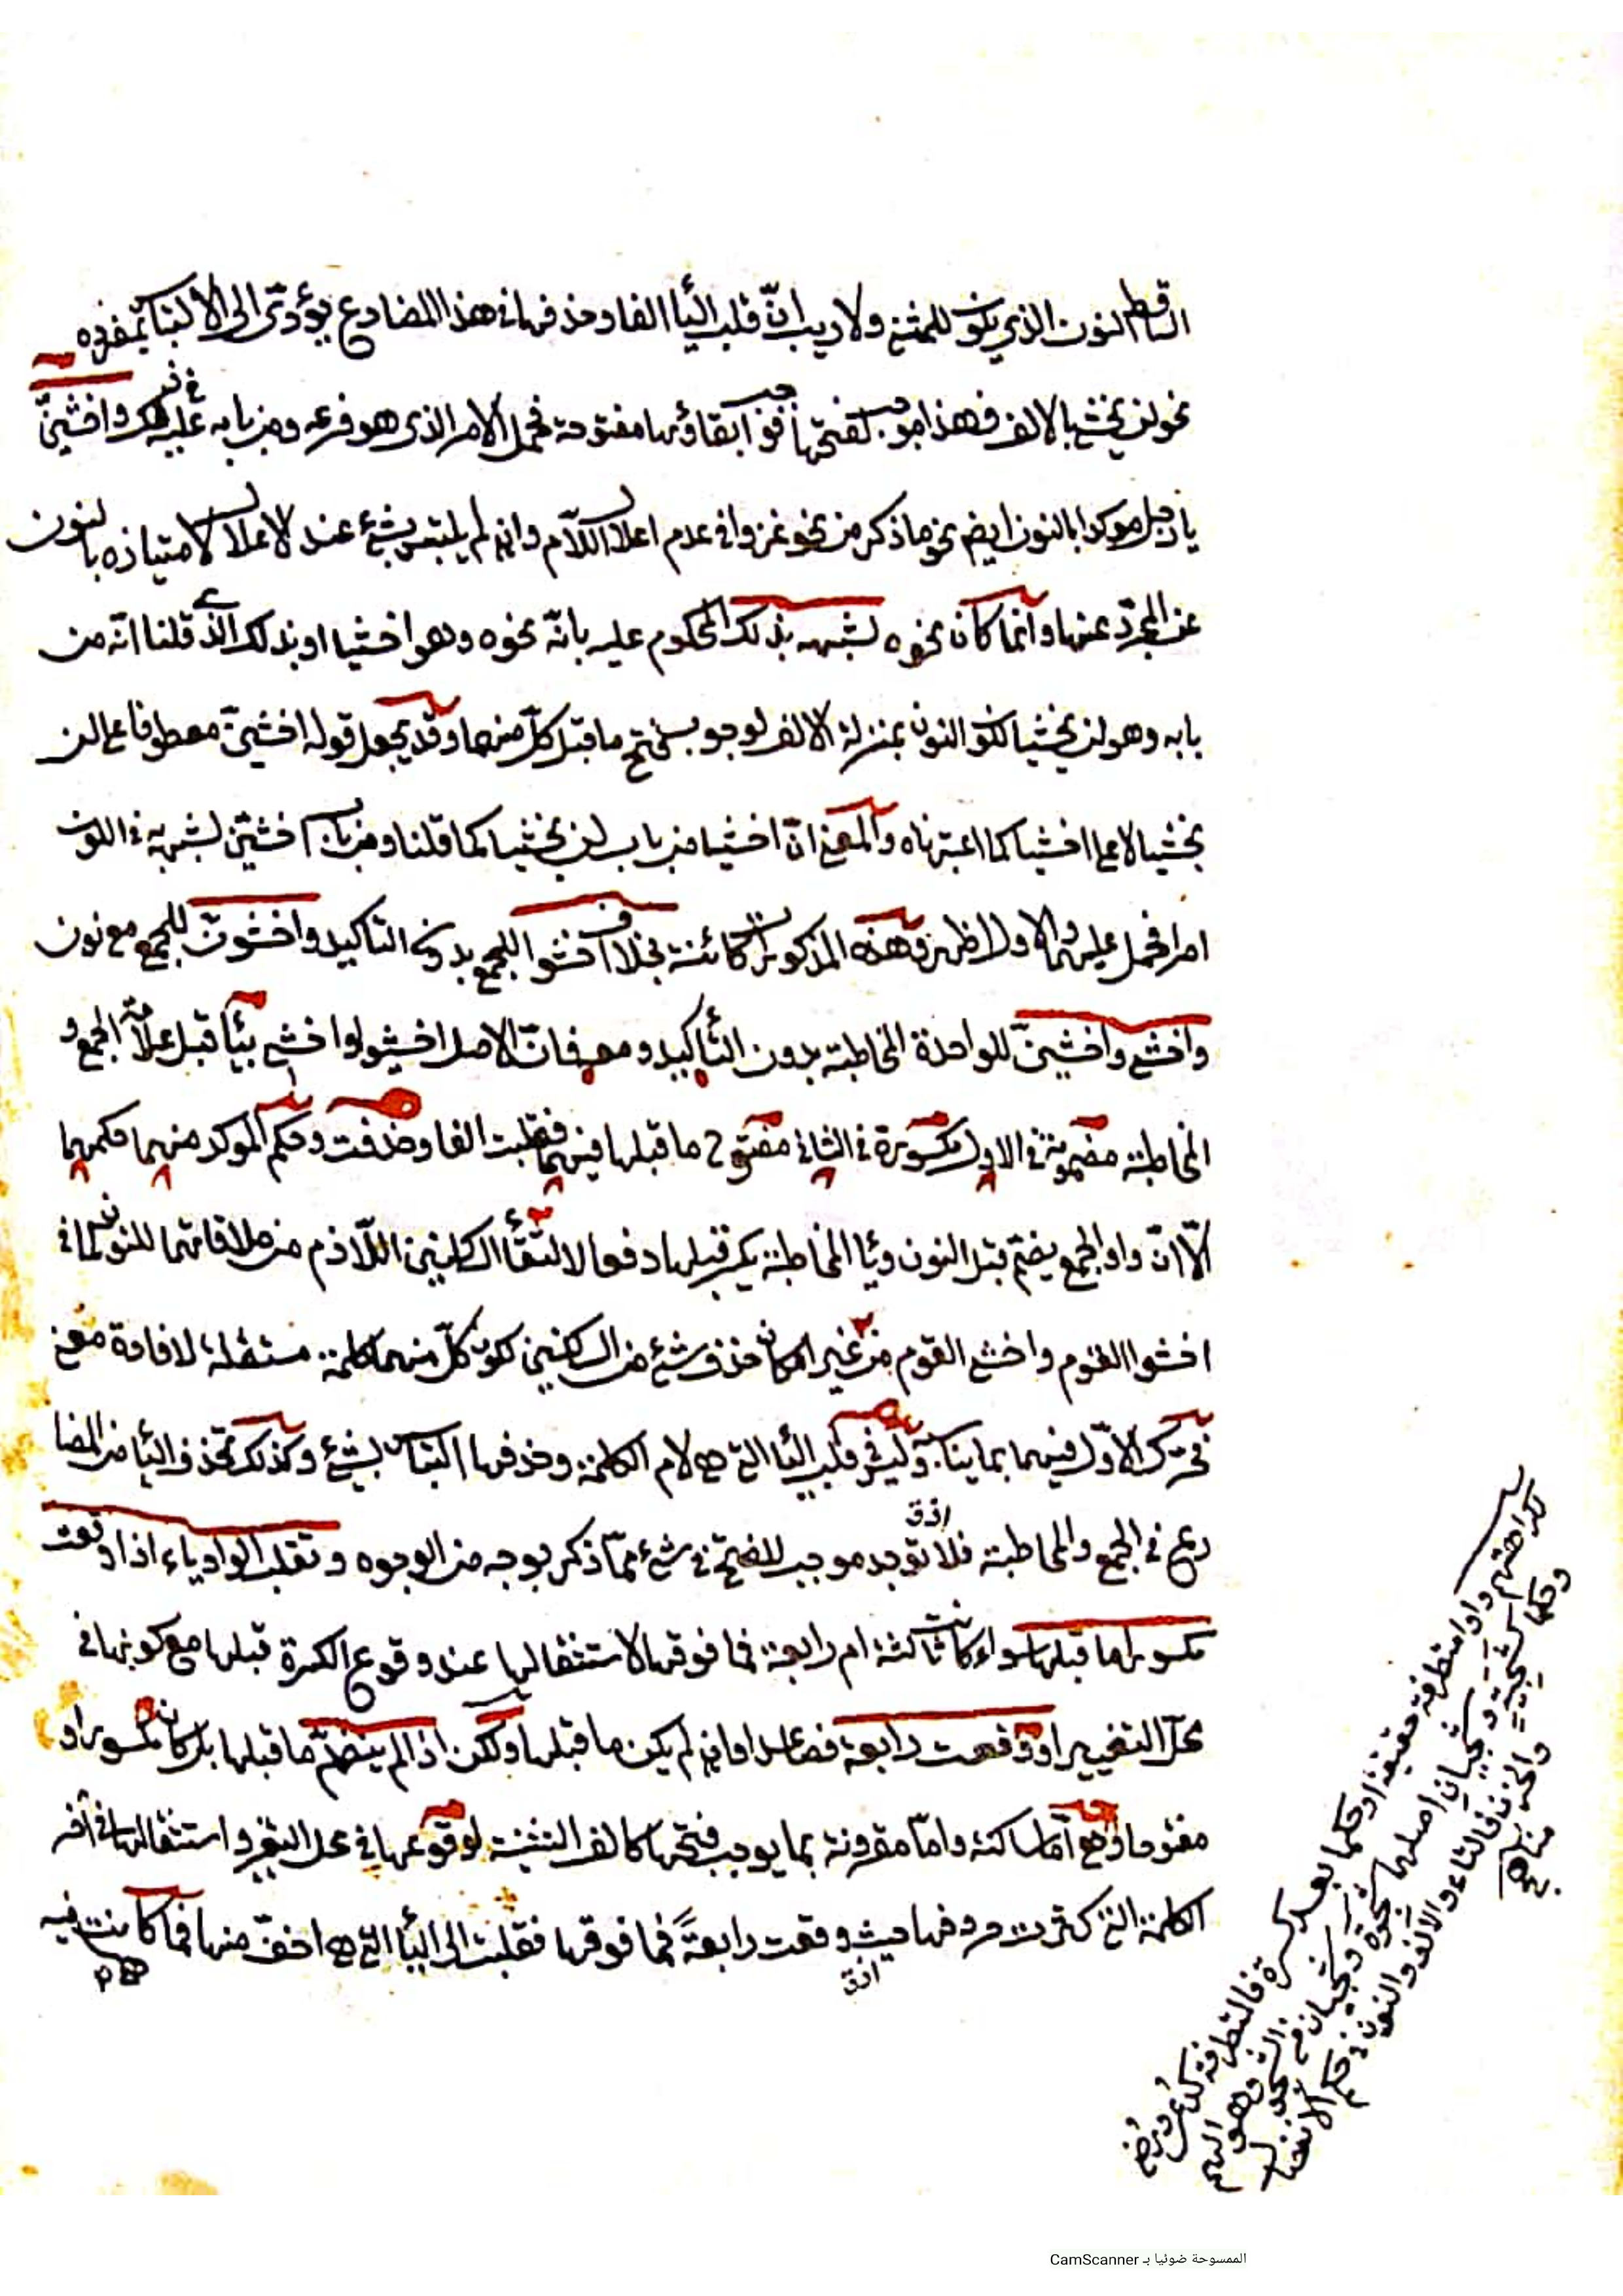 الساقط النون الذي يكون للمثنى ولا ريب ان قلب اليا الفا وحذفها في هذا المضارع يؤدى الى الالتباس بمفرده
نحو لن يخشى بالالف فهذا موجب لفتحها فوجب ابقاؤها مفتوحة فحمل الامر الذى هو فرعه ومن بابه عليه في ذلك واخشينّ
يا رجل موكدا بالنون ايض نحو ما ذكر من نحو غزوا في عدم اعلال اللام وان لم يلتبس بشئ عند الاعلال لامتيازه بالنون
عن المجرّد عنها وانما كان نحوه لشبهه بذلك المحكوم عليه بانّه نحوه وهو اخشيا او بذلك الذى قلنا انّه من
بابه وهو لن يخشيا لكون النون بمنزلة الالف لوجوب فتح ما قبل كلّ منهما وقد يجعل قوله اخشينّ معطوفا على لن
يخشيا لا على اخشيا كما اعتبرناه والمعنى انّ اخشيا من باب لن يخشيا كما قلنا ومن باب اخشينّ لشبهه في اللون
امرا فحمل عليهما والاول اظهر وهذه المذكورات كائنة بخلاف اخشوا للجمع بدون التاكيد واخشونّ للجمع مع نون
واخشى واخشينّ للواحدة المخاطبة بدون التأكيد ومعه فان الاصل اخشيوا واخشيى بيا قبل علامة الجمع و
المخاطبة مضمومة في الاول مكسورة في الثانى مفتوح ما قبلها فيهما فقلبت الفا وحذفت وحكم الموكد منهما حكمهما
الّا انّ واو الجمع يضمّ قبل النون ويا المخاطبة يكسر قبلها دفعا لالتقأ الساكنين اللّازم من ملاقاتهما للنون كما في
اخشوا القوم واخشى القوم من غير امكان حذف شئ من الساكنين لكون كلّ منهما كلمة مستقلة لافادة معنى
فحرك الاوّل فيهما بما يناسبه وليس في قلب اليا التى هى لام الكلمة وحذفها التباس بشئ وكذلك تحذف اليا من المضا
رع في الجمع والمخاطبة فلا توجد اذن موجب للفتحة في شئ ممّا ذكر بوجه من الوجوه وتقلب الواو ياء اذا وقعت
مكسورا ما قبلها سواء كانت ثالثة ام رابعة فما فوقها لاستثقالها عند وقوع الكسرة قبلها مع كونها في
محلّ التغيير او وقعت رابعة فصاعدا وان لم يكن ما قبلها ولكن اذا لم ينضمّ ما قبلها بل كان مكسورا او
مفتوحا وهى امّا ساكنة وامّا مقرونة بما يوجب فتحها كالف التثنية لوقوعها في محل التغير واستثقالها في آخر
الكلمة التى كثرت حروفها حيث وقعت رابعةً فما فوقها فقلبت الى اليأ التى هى اخفّ منها فما كانت فيه
اذن
لكراهتهم واوا متطرفة حقيقة او حكما بعد كسرة فالمتطرفة كدُعى ورُضى
وحكما كشجية وشجيان اصلهما شجوة وشجوان من الشجو وهو الهم
والحزن فالتاء والالف والنون في حكم الانفصال
مناهج
الممسوحة ضوئيا بـ CamScanner